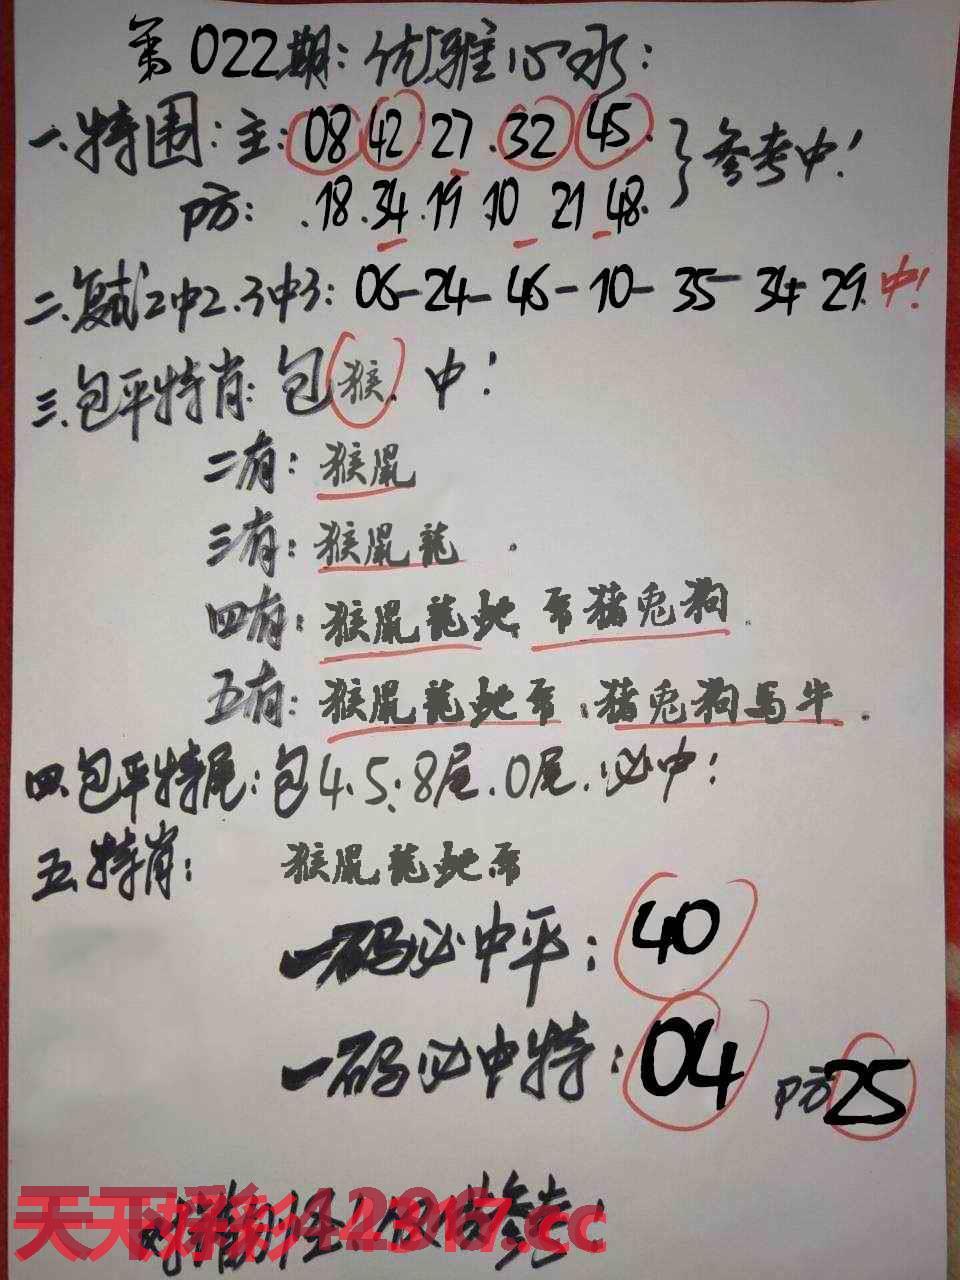 第022期：优雅心水：
一、特围：主：08 42 27 . 32 45. } 参考中！
防：.18.34.19 10 21 48.
二、复试2中2.3中3：06-24-46-10-35-34-29.中！
三、包平特肖：包猴.中！
二有：猴鼠
三有：猴鼠龍.
四有：猴鼠龍蛇 羊猪兔狗.
五有：猴鼠龍蛇羊：猪兔狗馬牛.
四.包平特尾：包4.5.8尾.0尾.必中！
五、特肖：猴鼠龍蛇羊
一码必中平：40
一码必中特：04 防25
天下彩 42917.cc